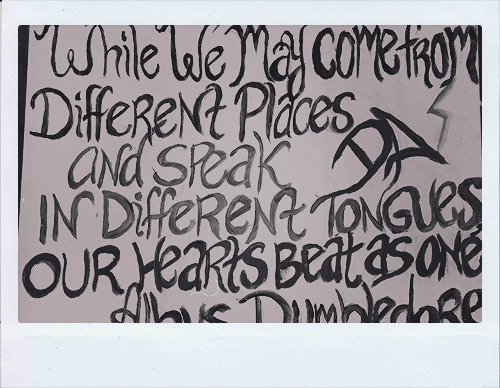 While We May come from
Different Places
DA
and Speak
IN Different Tongues,
OUR Hearts Beat as one
Albus Dumbledore